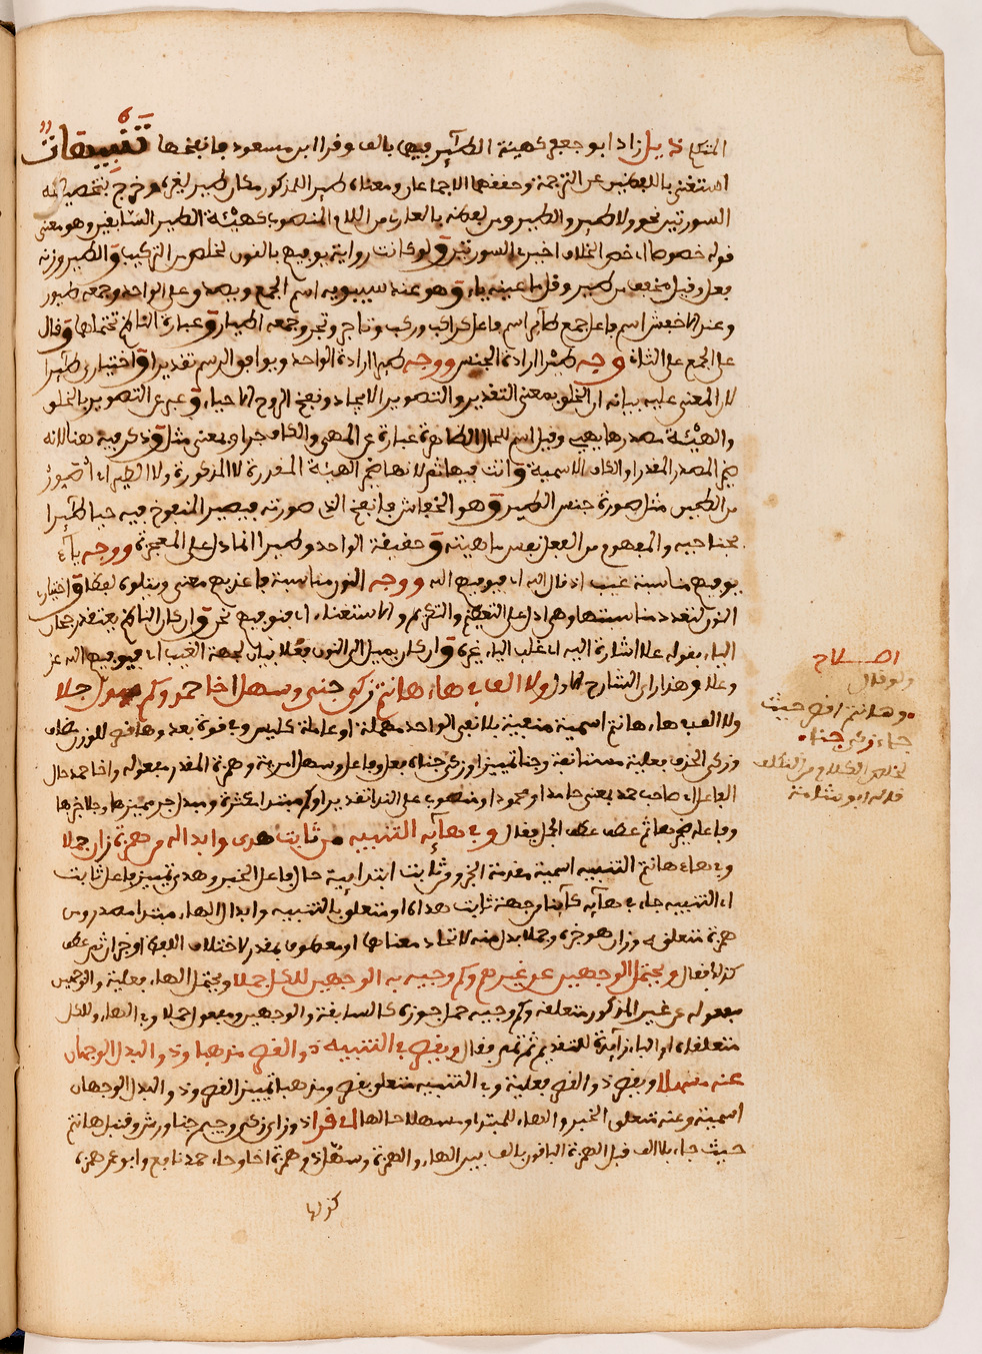 المتكلم ذيل زاد ابو جعفر كهيئة الطائر فيهما بالف وقرا ابن مسعود فانفخها تنبيهات
استغنى باللفظين عن الترجمة وحققهما الاجماعان ومعناه طير المذكور مكان طير ليغني وخرج بتخصيص
السورتين نحو ولا طير والطير ومن لفظه بالعاري من اللام المنصوب كهيئة الطير السابقين وهو معنى
قوله خصوصا اي خص الخلاف اخير السورتين ولو كانت رواية يوفيهم بالنون لخلص من التركيب والطير وزنه
فعل وقيل مخفف من طير وقل ما عينه ياء وهو عند سيبويه اسم الجمع ويصدق على الواحد وجمعه طيور
وعند الاخفش اسم فاعل جمع طائر اسم فاعل كراكب وركب وتاجر وتجر وجمعه اطيار وعبارة الناظم تحتملها وقال
على الجمع على الثلاثة وجه طيرا ارادة الجنس ووجه طائرا ارادة الواحد ويوافق الرسم تقديرا واختياري طائرا
لان المعنى عليه بيانه ان الخلق بمعنى التقدير والتصوير الايجاد ونفخ الروح الاحياء وعبر عن التصوير بالخلق
والهيئة مصدر هايهيئ وقيل اسم للحال الظاهرة عبارة عن المهيئ والكاف جر او بمعنى مثل وذكر فيه هنا لانه
ضمير المصدر المقدر او الكاف الاسمية وانث فيها ثم لانها ضمير الهيئة المقدرة لا المذكورة ولا الطير اي اصور
من الطين مثل صورة جنس الطير وهو الخفاش فانفخ في صورته فيصير المنفوخ فيه حيا طائرا
بجناحيه والمفهوم من الفعل نفس ماهيته وحقيقة الواحد وطيرا انما دل على المعجزة ووجه ياء
يوفيهم مناسبة غيب اذ قال الله اي فيوفيهم الله ووجه النون مناسبة فاعذبهم معنى ونتلوه لفظا واختياري
النون لتعدد مناسبتها وهي ادل على التعظيم والتكريم والاستغناء اي فنوفيهم نحن وان كان الناظم يعتقد رجحان
الياء بقوله علا اشارة اليه اي غلب الياء غيره وان كان يميل الى النون فعلا بيان لجهة الغيب اي فيوفيهم الله عز
وعلا وهذا راي الشارح الاول ولا الف في ها هانتم زكى جنى وسهل اخا حمد وكم مبدل جلا
ولا الف ها هانتم اسمية منفية بلا نفي الواحد مهملة او عاملة كليس وفي قوة بعد وها في للوزن مضاف
وزكى الحذف فعلية مستانفة وجنا تمييز او زكى جناه فعل وفاعل وسهل امرية وهمزة المقدر مفعوله واخا حمد حال
الفاعل اي صاحب حمد بمعنى حامدا او محمودا او منصوب على الندا تقديرا وكم مبتدا لكثرة ومبدل جر مميزها وجلا خبرها
وفاعله ضميرها ثم عطف عطف الجمل فقال وفي هائه التنبيه من ثابت هدى وابداله من همزة زان جملا
وفي هاء هانتم التنبيه اسمية مقدمة الخبر ومن ثابت ابتدائية حال فاعل الخبر وهدى تمييز فاعل ثابت
اي التنبيه جاء في هائه كائنا من جهة ثابت هداه او متعلق بالتنبيه وابدال الهاء مبتدا مصدر ومن
همزة متعلق به وزان هو خبره وجملا بدل منه لاتحاد معناهما او معطوف بمقدر لاختلاف اللفظ او خبران ثم عطف
كذلك فقال ويحتمل الوجهين عن غيرهم وكم وجيه به الوجهين للكل حملا ويحتمل الهاء فعلية والوجهين
مفعوله عن غير المذكور متعلقه وكم وجيه حمل جوزه كالسابقة والوجهين مفعول حملا وفي الهاء وللكل
متعلقاه او الباء زائدة للتقديم ثم تمم فقال ويقصر في التنبيه ذو القصر مذهبا وذو البدل الوجهان
عنه مسهلا ويقصر ذو القصر فعلية وفي التنبيه متعلق يقصر ومذهبا تمييز القصر وذو البدل الوجهان
اسمية وعنه متعلق الخبر والهاء للمبتدا ومسهلا حالها اي قرا ذو زاي زكى وجيم جنا ورش وقنبل هانتم
حيث جاء بلا الف قبل الهمزة الباقون بالف بين الهاء والهمزة وسهل ذو همزة اخا وحاء حمد نافع وابو عمرو همزه
كذلها
اصلاح
ولو قال
وهانتم اقصر حيث
جاء زكى جنا
لخلص الكلام من التكلف
قاله ابو شامة